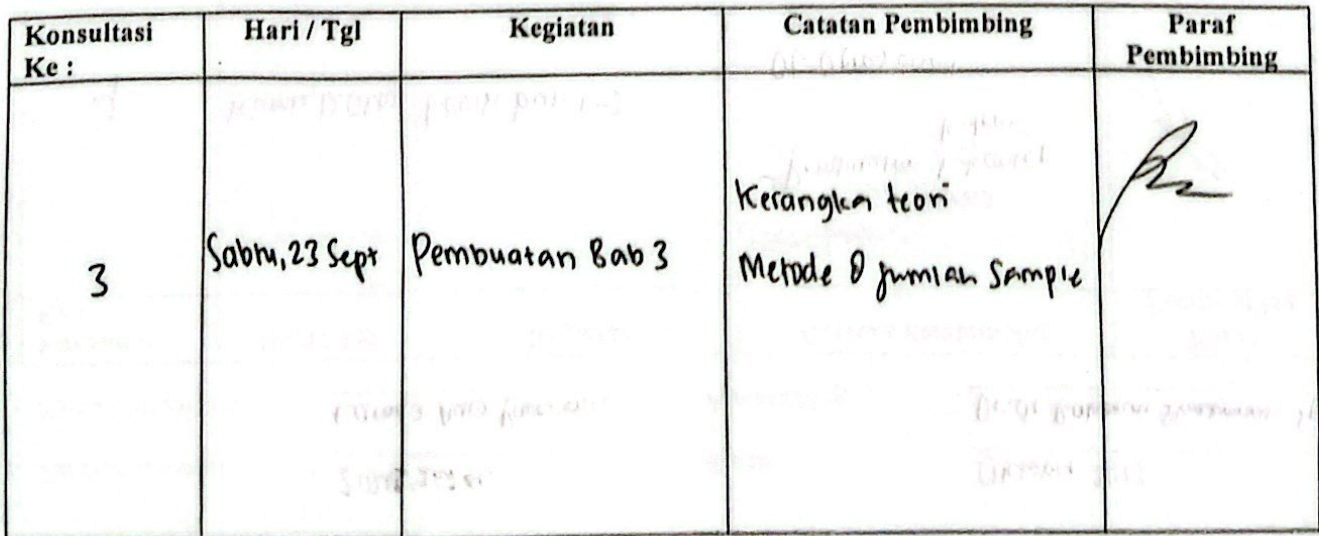 Konsultasi Ke :
Hari / Tgl
Kegiatan
Catatan Pembimbing
Paraf Pembimbing
3
Sabtu, 23 Sept
Pembuatan Bab 3
Kerangka teori
Metode & jumlah Sample